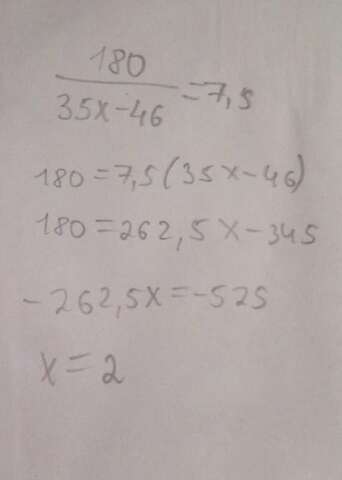 180
35x-46 =7,5
180=7,5(35x-46)
180=262,5x-345
-262,5x=-525
x=2